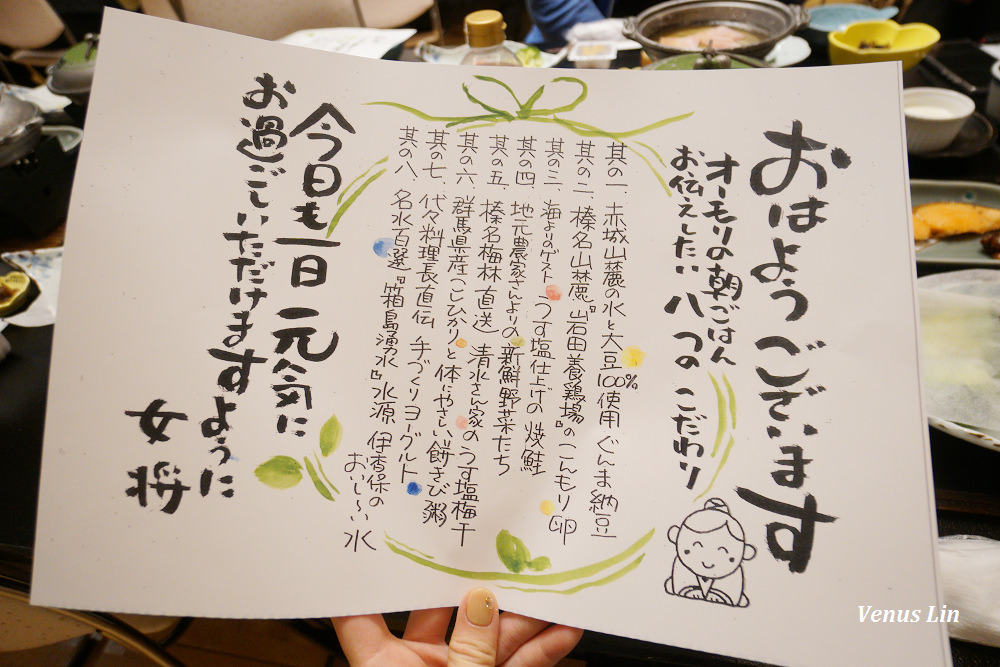 おはようございます
オーモリの朝ごはん
お伝えしたい八つのこだわり
其の一、赤城山麓の水と大豆100%使用ぐんま納豆
其の二、榛名山麓『岩田養鶏場』のこんもり卵
其の三、海よりのゲスト うす塩仕上げの焼鮭
其の四、地元農家さんよりの新鮮野菜たち
其の五、榛名梅林直送 清水さん家のうす塩梅干
其の六、群馬県産こしひかりと体にやさしい餅きび粥
其の七、代々料理長直伝 手づくりヨーグルト
其の八、名水百選『箱島湧水』水源 伊香保の
おいし〜い水
今日も一日元気に
お過ごしいただけますように
女将
Venus Lin